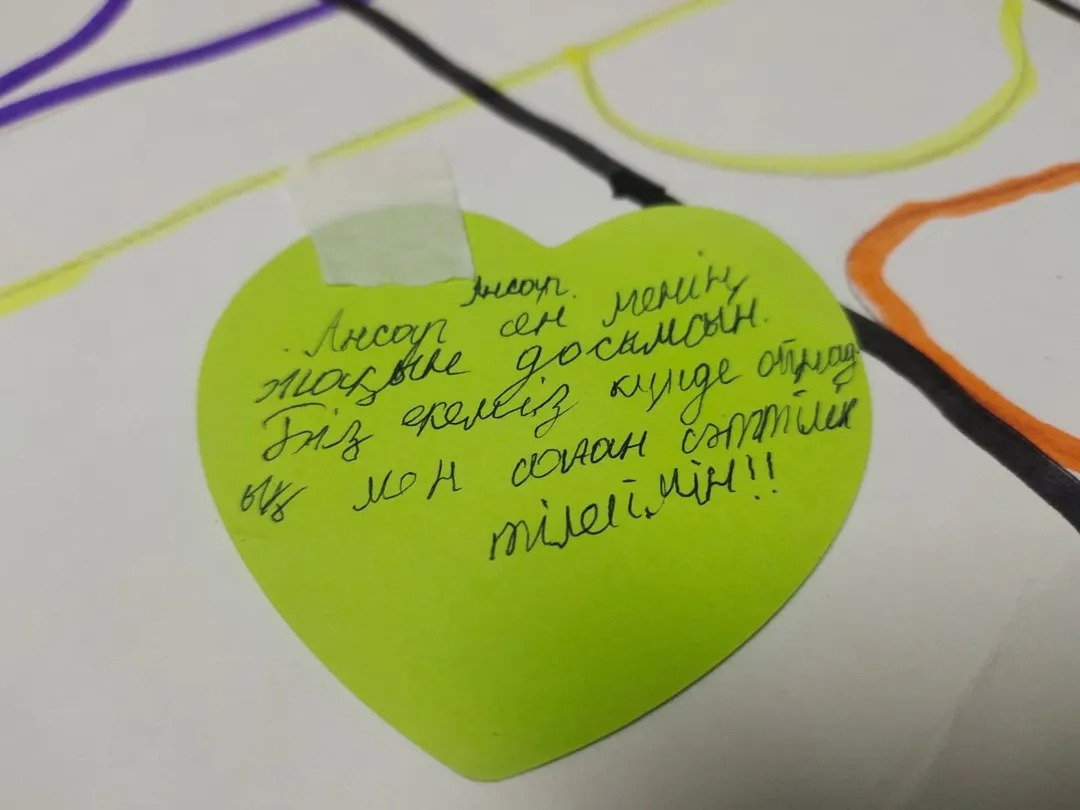 Ансар.
Ансар сен менің
жақын досымсын.
Біз екеміз күнде ойнад
ық мен саған сәттілік
тілеймін!!